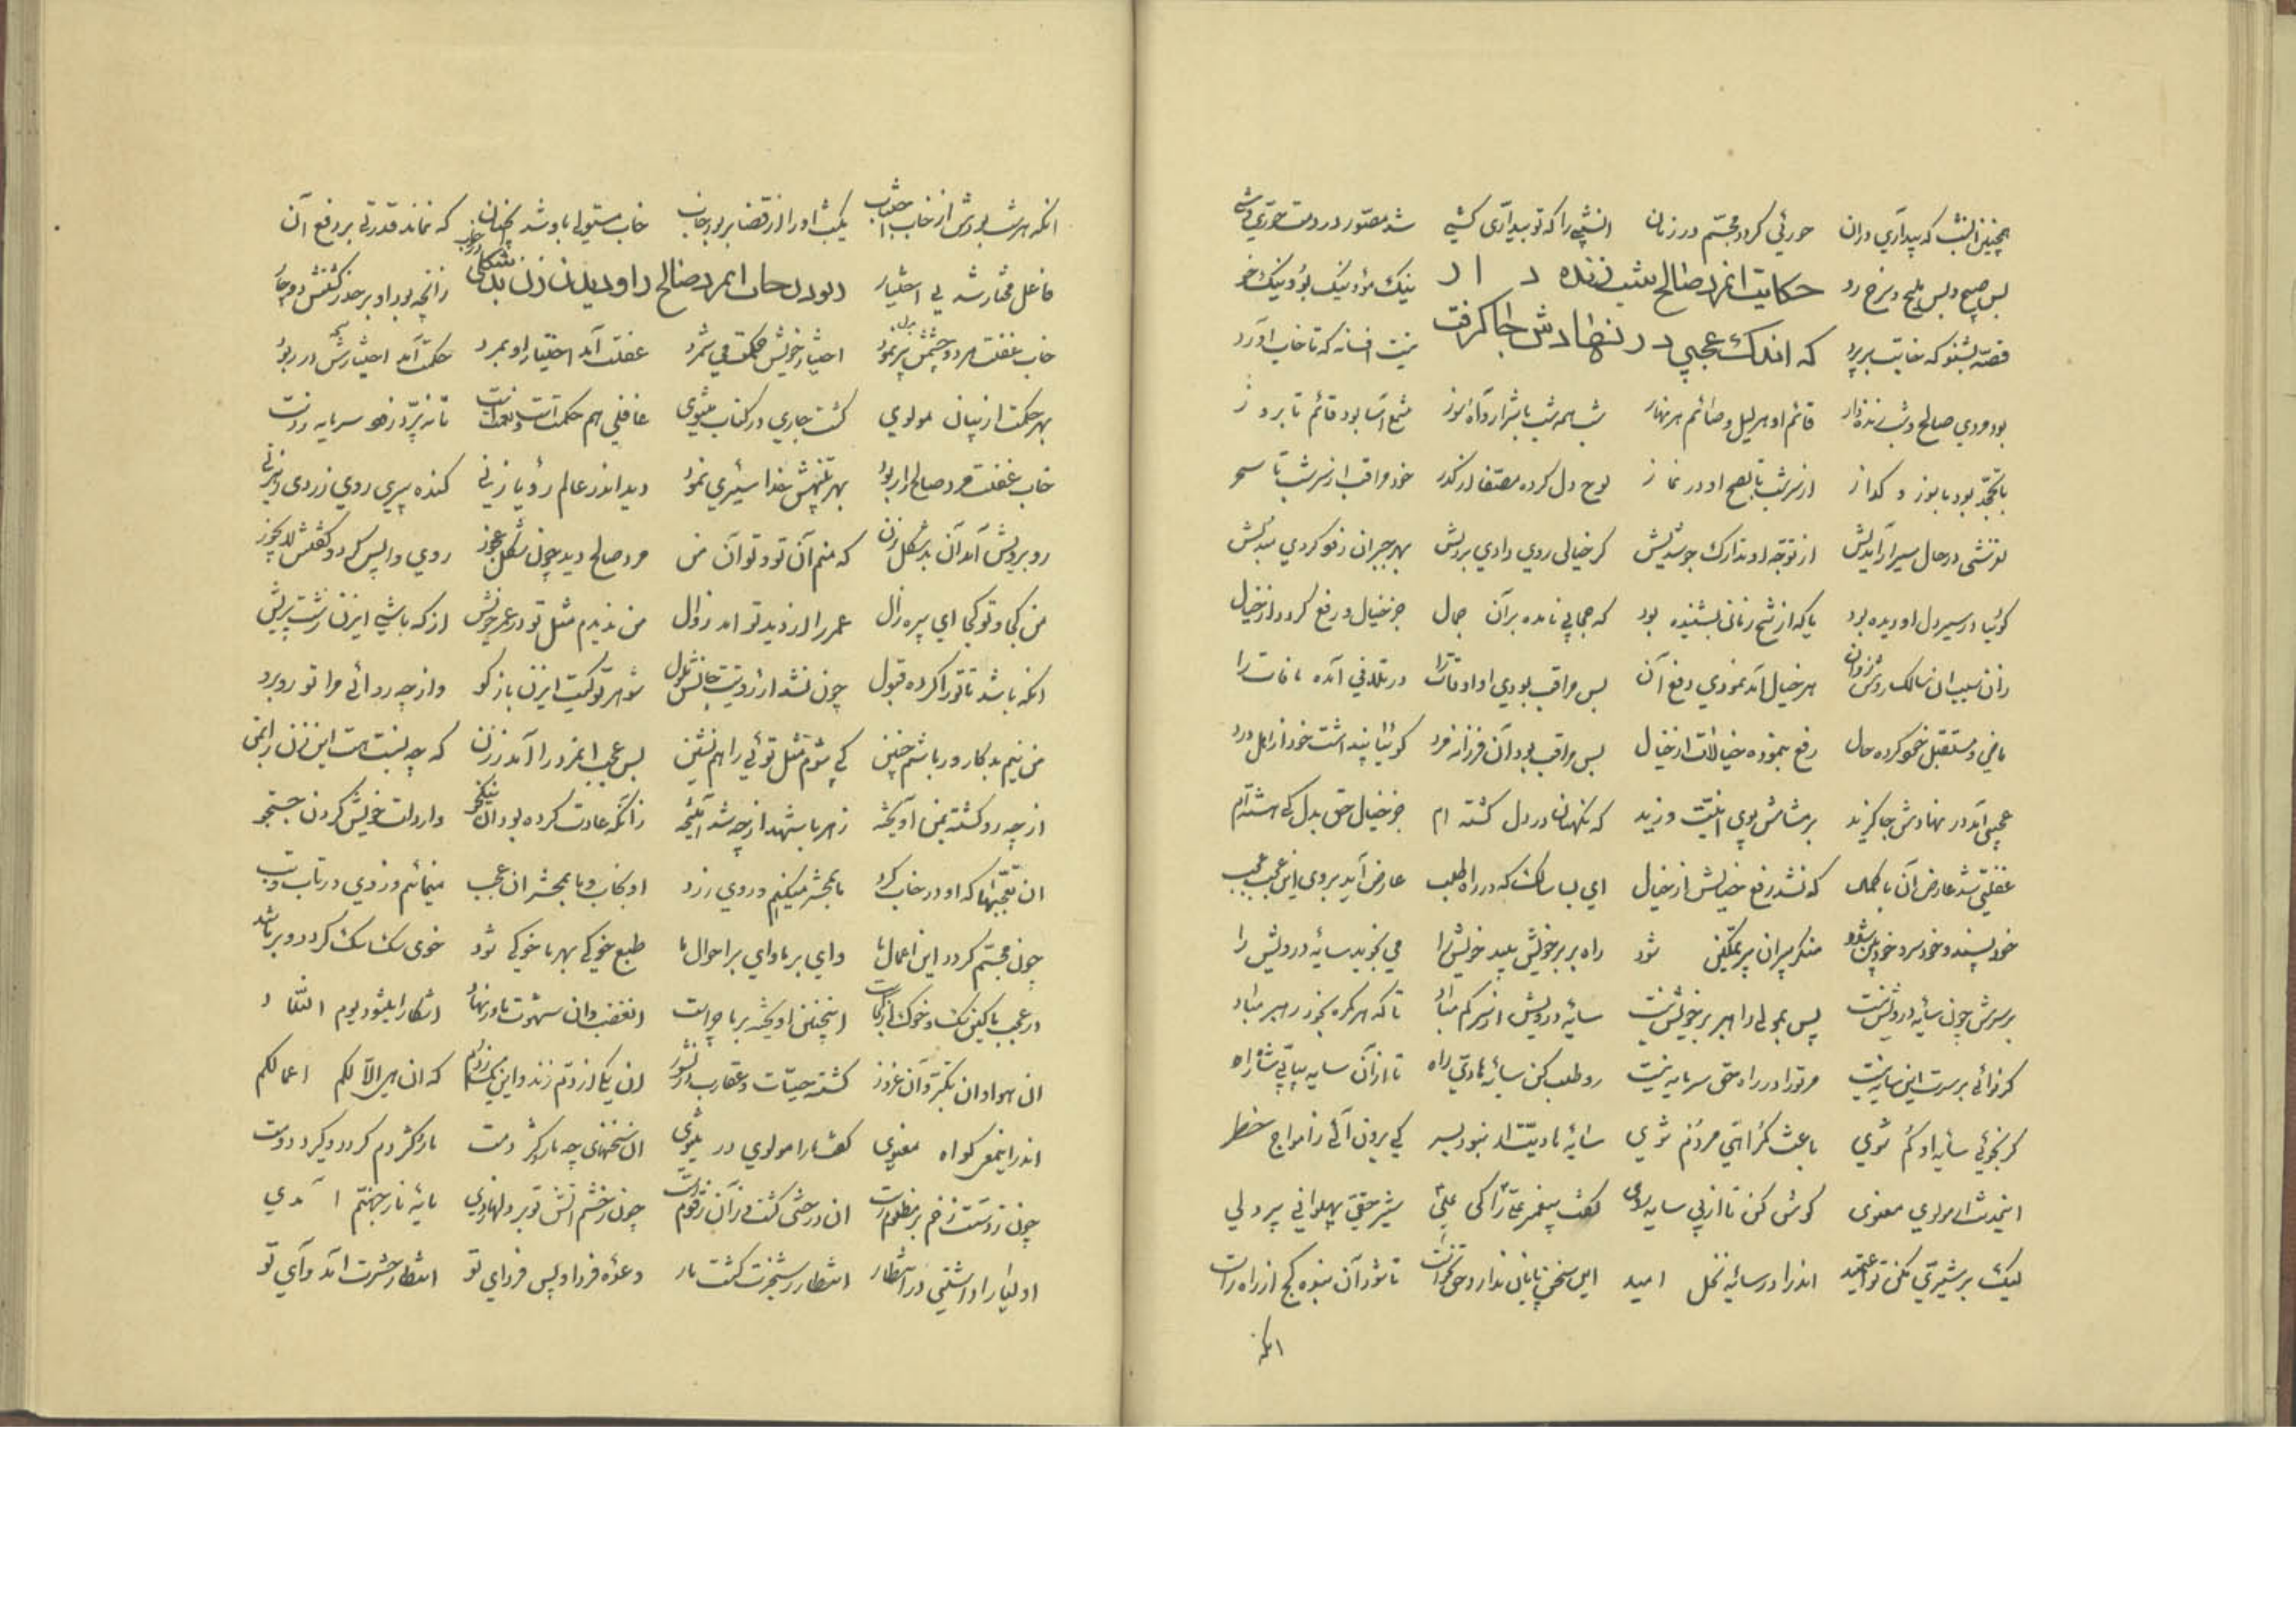 همچنین انشب که بیداری دران حورئی کردد مجسّم در زمان انشبی را که تو بیداری کشی شد مصوّر در دمت حوری وشی
بس صبیح و بس ملیح و سرخ رو حکایت انمرد صالح شب زنده دار نیک مو و نیک بو و نیک خو
قصّه بشنو که خابت برپرد که اندک عجبی در نهادش جا کرفت نیست افسانه که تا خاب اورد
بود مردی صالح و شب زنده دار قائم او هر لیل و صائم هر نهار شب همه شب با شرار و آه و سوز شمع آسا بود قائم تا بروز
با تهجّد بود با سوز و کداز از سر شب تا بصبح او در نماز لوح دل کرده مصفا از کدر خود مراقب از سر شب تا سحر
از توجّه او تدارک جوشدیش کر خیالی روی دادی بر دلش بهر جبران
کوئیا در سیر دل او دیده بود یا که از شیخ زمانی بشنیده بود که حجابی نامده بر آن جمال جز خیال و رفع کردد از خیال
هر خیال آمد نمودی دفع آن بس مراقب بودی او اوقات را در تلافی آمده مافات را
ماضی و مستقبل خمو کرده حال رفع بنموده خیالات از خیال بس مراقب بود آن فرزانه فرد کوئیا پنداشت خود از اهل درد
عجبی آمد در نهادش جا کزید بر مشامش بوی انیّت وزید که نکهبان در دل کشته ام جز خیال حق بدل کی هشته ام
غفلتی شد عارض آن با کمال که نشد رفع خیالش از خیال ای بسا سالک که در راه طلب عارض آید بروی این عجب عجب
خود پسند و خود سر و خود بین شود منکر پیران پر تمکین شود راه بر بر خویش بیند خویش را می نجوید سایه درویش را
بر سرش چون سایه درویش نیست پس بمولی راهبر بر خویش نیست سایه درویش از سر کم مباد تا که هر کمره بخود رهبر مباد
کر نوائی بر سرت این سایه نیست مر تو را در راه حق سرمایه نیست رو طلب کن سایه هادی راه تا از آن سایه بیابی شاه راه
کر نجوئی سایه او کم شوی باعث کمراهی مردم شوی سایه هادیت ار نبود بسر کی برون آئی ز امواج خطر
اینحدیث از مولوی معنوی کوش کن تا از پی سایه روی کفت پیغمبر علی را کی علی شیر حقی پهلوانی پر دلی
لیک بر شیری مکن تو اعتمید اندرا در سایه نخل امید این سخن پایان ندارد تا شود آن بنده کج از راه راست
انکه
انکه هر شب بودش از خاب اجتناب یکشب او را از قضا بربود خاب خاب مستولی باو شد که نماند قدرتی بر دفع آن
فاعل مختار شد بی اختیار ربودن خاب انمرد صالح را و دیدن زن بد شکلی در خاب زانچه بود او بر حذر کشتش دوچار
خاب غفلت هر دو چشمش پر نمود اختیار خویش حکمت می شمرد غفلت آمد اختیار او ببرد حکمت آمد اختیارش در ربود
بهر حکمت از بیان مولوی کشت جاری در کتاب مثنوی غافلی هم حکمت است و نعمت است تا نه پرّد زود سرمایه ز دست
خاب غفلت مرد صالح را ربود بهر تنبیهش خدا سیری نمود دید اندر عالم رؤیا زنی کنده پیری روی زردی
روبرویش آمد آن بد شکل زن که منم آن تو و تو آن من مرد صالح دید چون شکل عجوز روی واپس کرد و کفتش
من کجا و تو کجا ای پیره زال عمر را از دید تو آمد زوال من ندیدم مثل تو در عمر خویش
انکه باشد تا تو را کرده قبول چون نشد از رؤیتت جانش ملول شوهر تو کیست ایزن باز کو واز چه رو آئی مرا تو روبرو
من نیم بدکار و ور باشم چنین کی شوم مثل توئی را همنشین بس عجب انمرد را آمد ز زن که چه نسبت هست این زن را بمن
از چه رو کشته بمن آویخته زهر با شهد از چه شد آمیخته زانکه عادت کرده بود آن نیکخو واردات خویش کردن جستجو
ان تعجّبها که او در خاب کرد ما بمحشر میکنیم و روی زرد او بخاب و ما بمحشر ان عجب مینمائیم
چون مجسّم کردد این اعمال ما وای بر ما وای بر احوال ما طبع خوکی بهر ما خوکی شود خوی سک سک کردد و بر ما
در عجب اینچنین آویخته بر ما چراست ان غضب وان شهوت ما در نهاد اشکارا میشود یوم التناد
ان هوا و ان تکبّر و آن غرور کشته حیّات و عقارب در نشور ان یکی از دم زند و این یک ز دم که ان هی الّا لکم اعمالکم
اندر اینمعنی کواه معنوی کفت ما را مولوی در مثنوی ان سخنهای چو مار و کژدمت مار و کژدم کردد و کیرد دمت
چون ز دستت زخم بر مظلوم رست ان درختی کشت و زان زقوم رست چون ز خشم آتش تو بر دلها زدی مایه نار جهنّم آمدی
اولیا را داشتی در انتظار انتظار رستخیزت کشت یار وعده فردا و پس فردای تو انتظار حشرت آمد وای تو